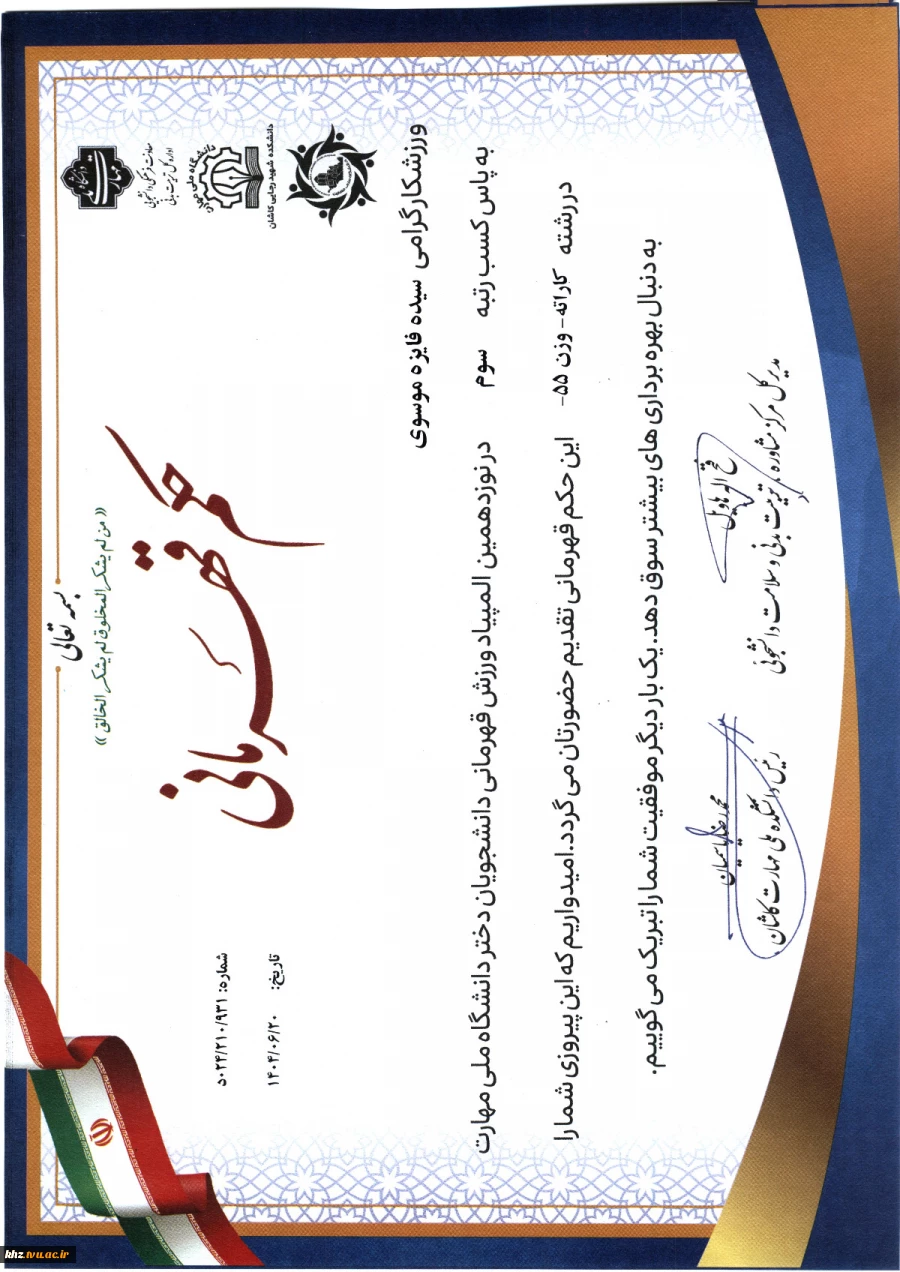 بسمه تعالی
« من لم یشکر المخلوق لم یشکر الخالق »
حکم قهرمانی
دانشگاه ملی مهارت
دانشکده شهید رجایی کاشان
معاونت فرهنگی و دانشجویی
اداره کل تربیت بدنی
شماره: ۰۲۴/۲۱۰/۹۳۱د
تاریخ: ۱۴۰۴/۰۶/۲۰
ورزشکار گرامی سیده فایزه موسوی
به پاس کسب رتبه سوم در نوزدهمین المپیاد ورزش قهرمانی دانشجویان دختر دانشگاه ملی مهارت
در رشته کاراته- وزن ۵۵- این حکم قهرمانی تقدیم حضورتان می گردد. امیدواریم که این پیروزی شما را
به دنبال بهره برداری های بیشتر سوق دهد. یک بار دیگر موفقیت شما را تبریک می گوییم.
فتح الهی هاویل
مدیر کل مرکز مشاوره، تربیت بدنی و سلامت دانشجویی
محمدرضا
رئیس دانشکده ملی مهارت کاشان
khz.tvu.ac.ir